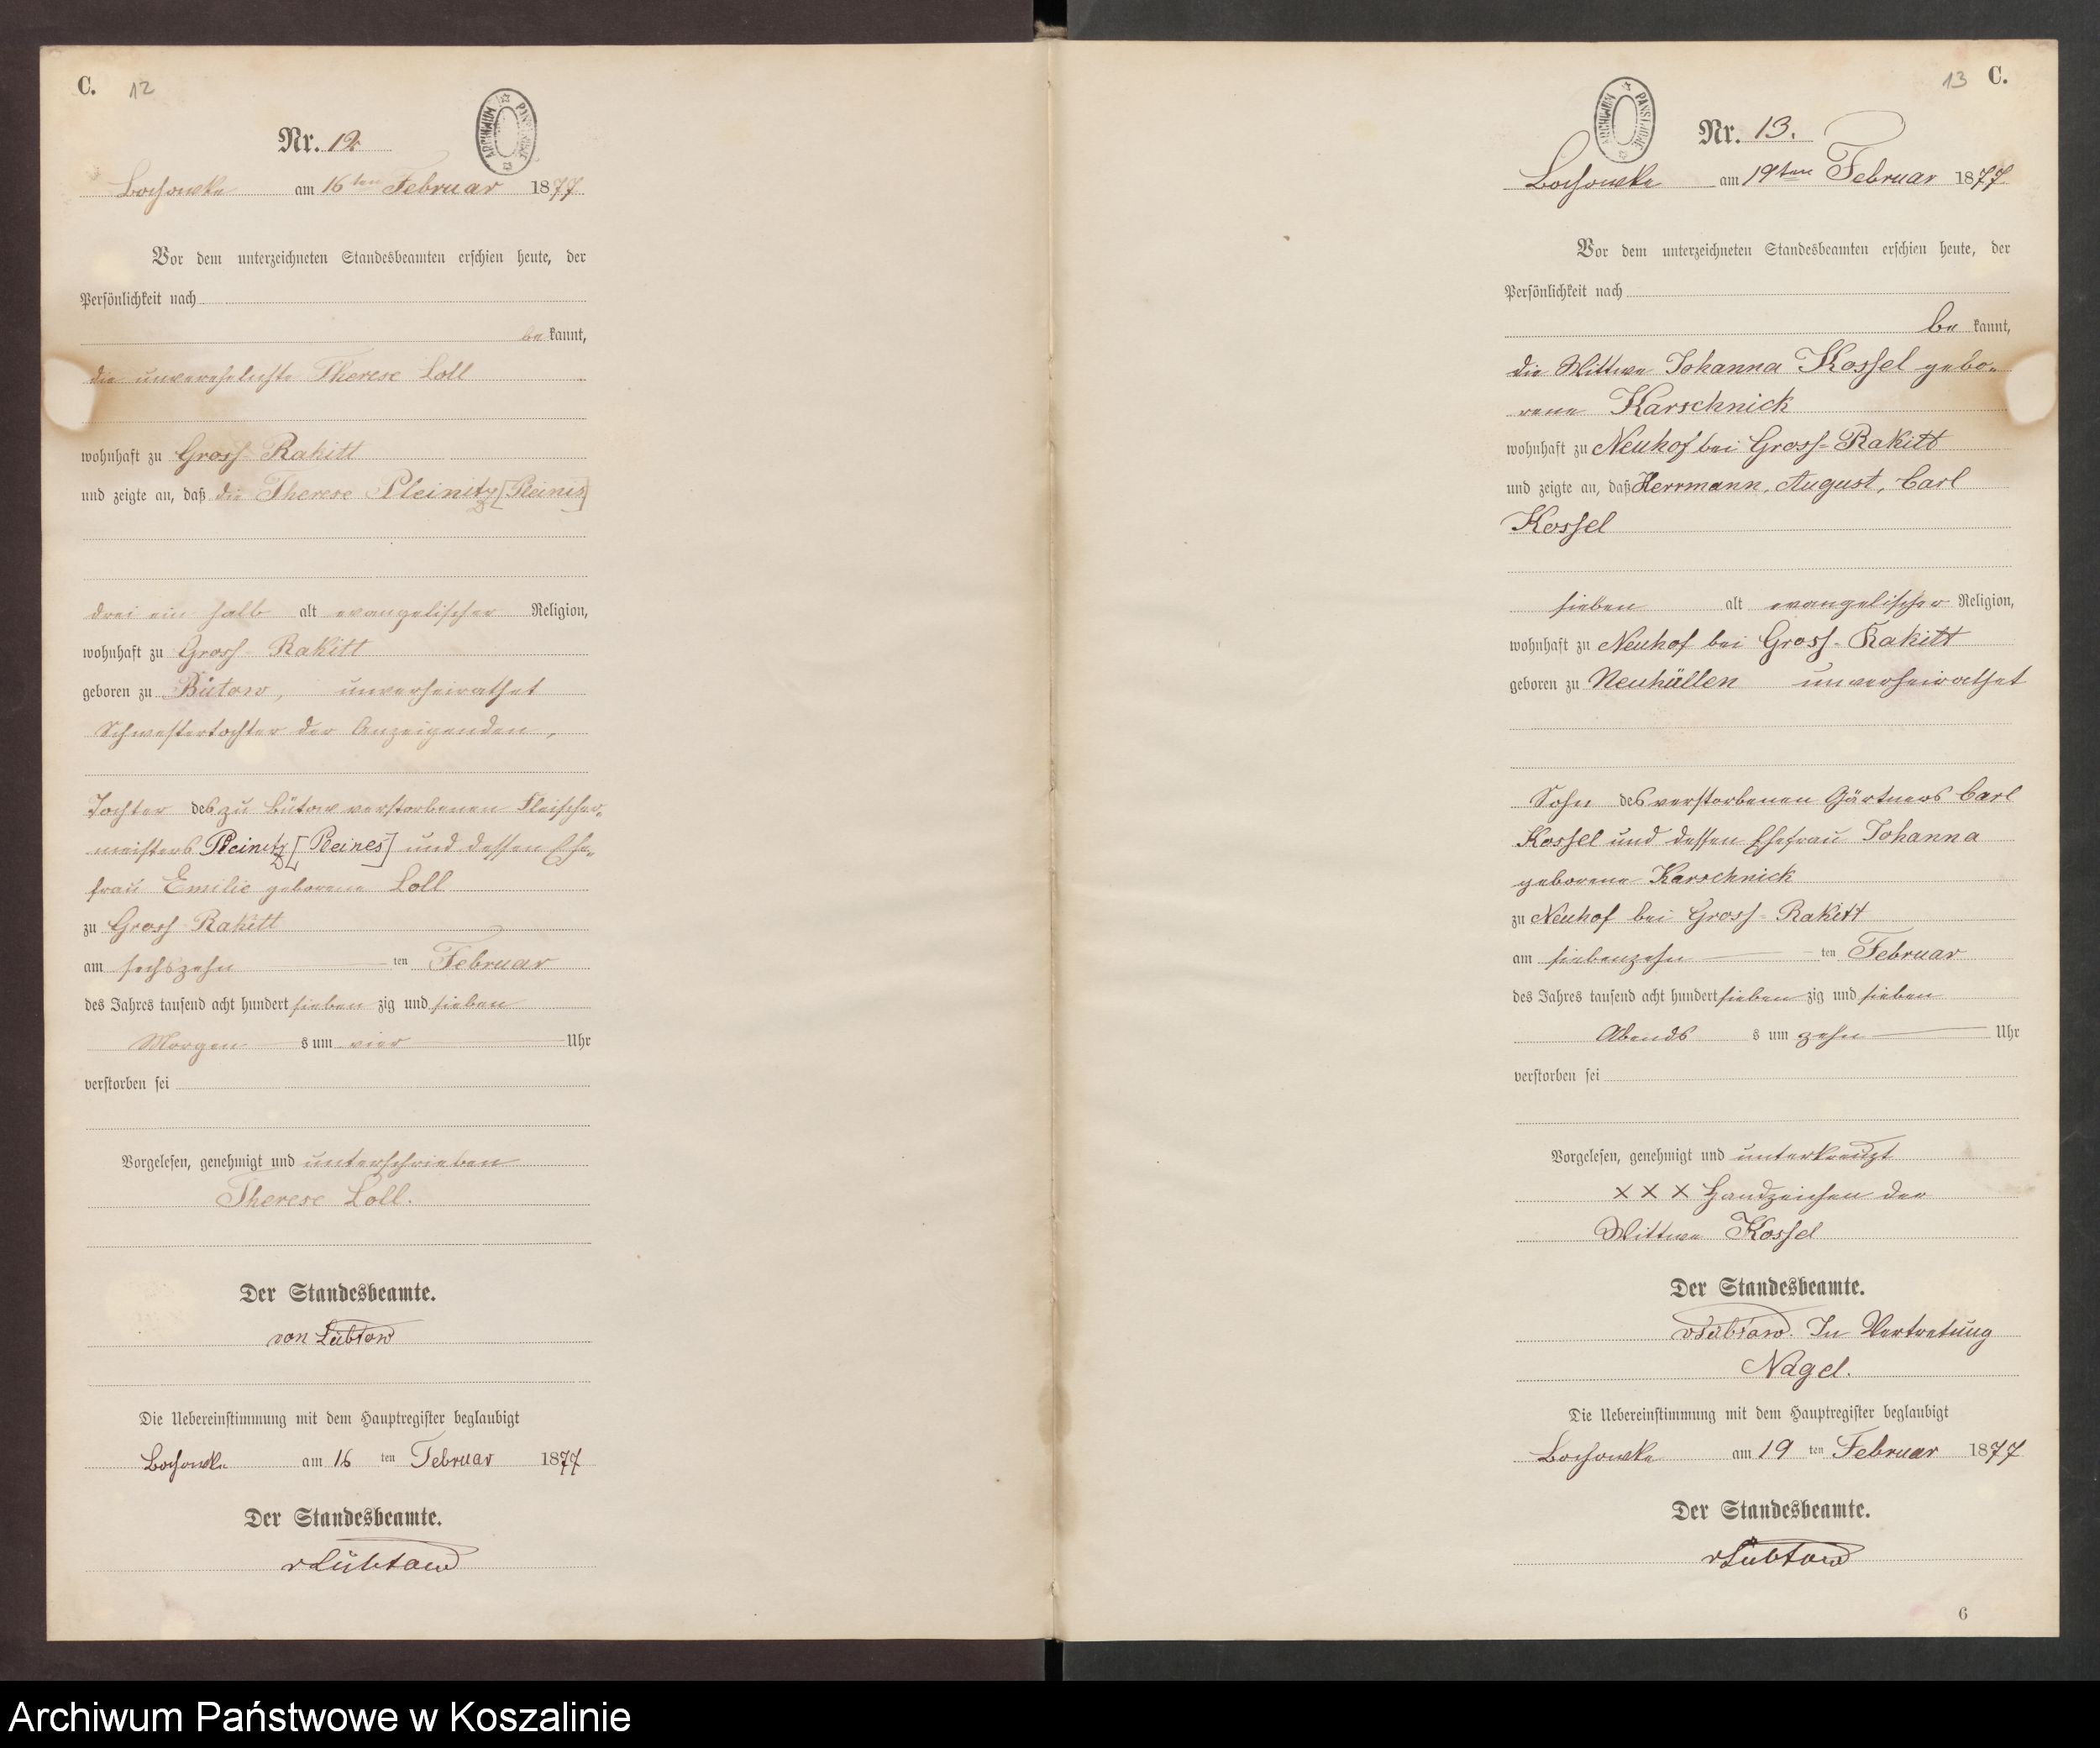 C. 12
ARCHIWUM PAŃSTWOWE
Nr. 12
Lochowke am 16ten Februar 1877
Vor dem unterzeichneten Standesbeamten erschien heute, der
Persönlichkeit nach
be kannt,
die unverehelichte Therese Loll
wohnhaft zu Gross Rakitt
und zeigte an, daß die Therese Pleinitz [Pleinis]
drei ein halb alt evangelischer Religion,
wohnhaft zu Gross Rakitt
geboren zu Bütow, unverheirathet
Schwestertochter der Anzeigenden,
Tochter des zu Bütow verstorbenen Fleischer-
meisters Pleinitz [Pleines] und dessen Ehe-
frau Emilie geborene Loll
zu Gross Rakitt
am sechszehn ten Februar
des Jahres tausend acht hundert sieben zig und sieben
Morgen s um vier Uhr
verstorben sei
Vorgelesen, genehmigt und unterschrieben
Therese Loll.
Der Standesbeamte.
von Lübtow
Die Uebereinstimmung mit dem Hauptregister beglaubigt
Lochowke am 16 ten Februar 1877
Der Standesbeamte.
vLübtow
13 C.
ARCHIWUM PAŃSTWOWE
Nr. 13.
Lochowke am 19ten Februar 1877
Vor dem unterzeichneten Standesbeamten erschien heute, der
Persönlichkeit nach
be kannt,
die Wittwe Johanna Kossel gebo-
rene Karschnick
wohnhaft zu Neuhof bei Gross-Rakitt
und zeigte an, daß Herrmann, August, Carl
Kossel
sieben alt evangelischer Religion,
wohnhaft zu Neuhof bei Gross-Rakitt
geboren zu Neuhütten unverheirathet
Sohn des verstorbenen Gärtners Carl
Kossel und dessen Ehefrau Johanna
geborene Karschnick
zu Neuhof bei Gross-Rakitt
am siebenzehn ten Februar
des Jahres tausend acht hundert sieben zig und sieben
Abends s um zehn Uhr
verstorben sei
Vorgelesen, genehmigt und unterkreuzt
XXX Handzeichen der
Wittwe Kossel
Der Standesbeamte.
vLübtow. In Vertretung
Nagel.
Die Uebereinstimmung mit dem Hauptregister beglaubigt
Lochowke am 19 ten Februar 1877
Der Standesbeamte.
vLübtow
6
Archiwum Państwowe w Koszalinie